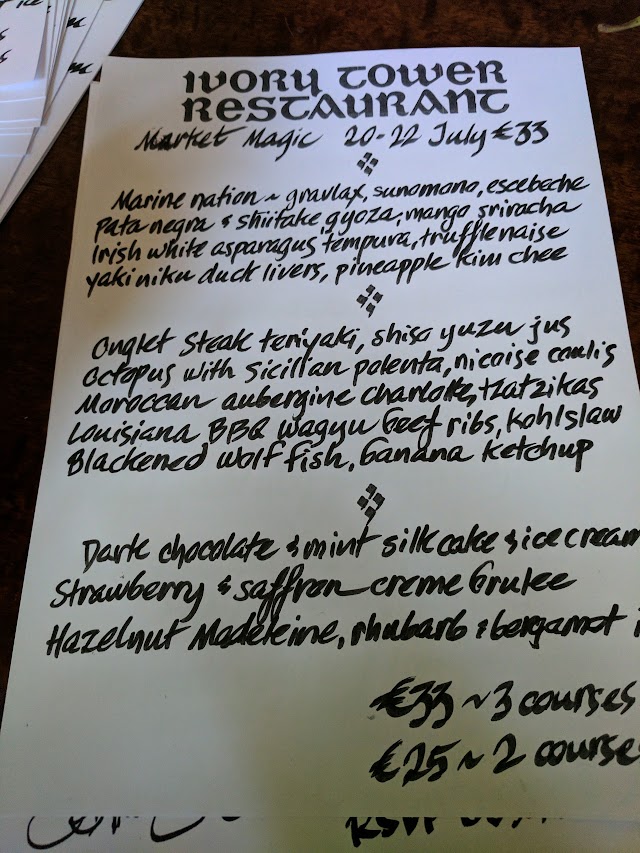 IVORY TOWER
RESTAURANT
Market Magic 20-22 July €33
Marine nation ~ gravlax, sunomono, escebeche
Pata negra & shiitake gyoza, mango sriracha
Irish white asparagus tempura, trufflenaise
yakiniku duck livers, pineapple kim chee
Onglet steak teriyaki, shiso yuzu jus
Octopus with Sicilian polenta, nicoise coulis
Moroccan aubergine charlotte, tzatzikas
Louisiana BBQ wagyu beef ribs, kohlslaw
Blackened wolf fish, banana ketchup
Dark chocolate & mint silk cake & ice cream
Strawberry & saffron creme brulee
Hazelnut Madeleine, rhubarb & bergamot
€33 ~ 3 courses
€25 ~ 2 course